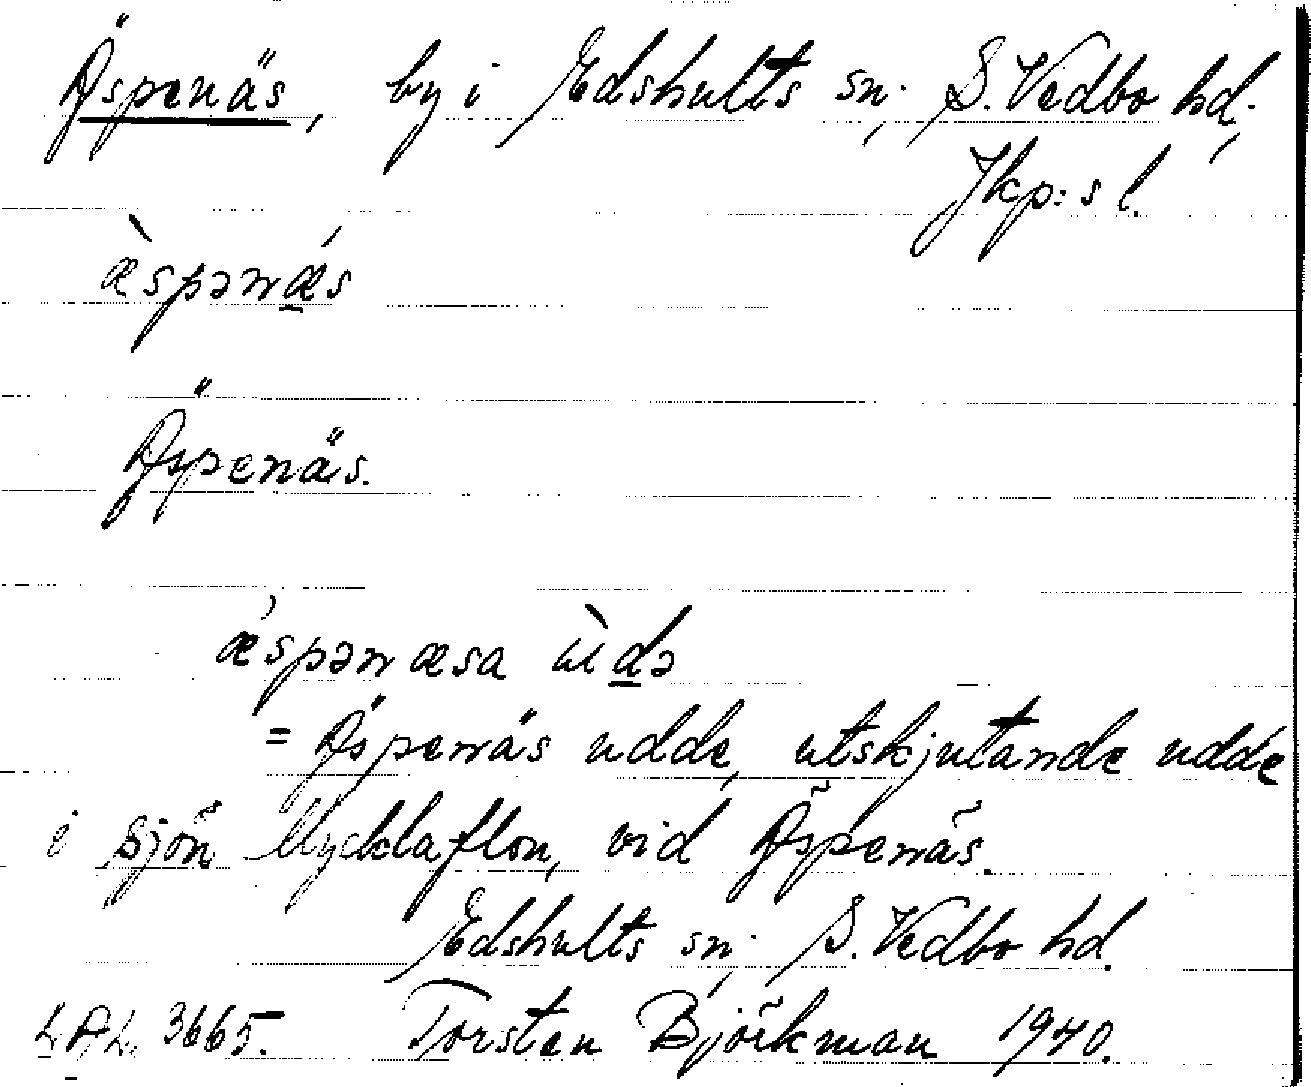 Äspenäs, by i Edshults sn; S. Vedbo hd;
Jkp:s l.
æ̀spənǽ̲s
Äspenäs.
ǽspənæsa ùd̲ə
= Äspenäs udde, utskjutande udde
i sjön Mycklaflon, vid Äspenäs.
Edshults sn; S. Vedbo hd.
3665. Torsten Björkman 1940.